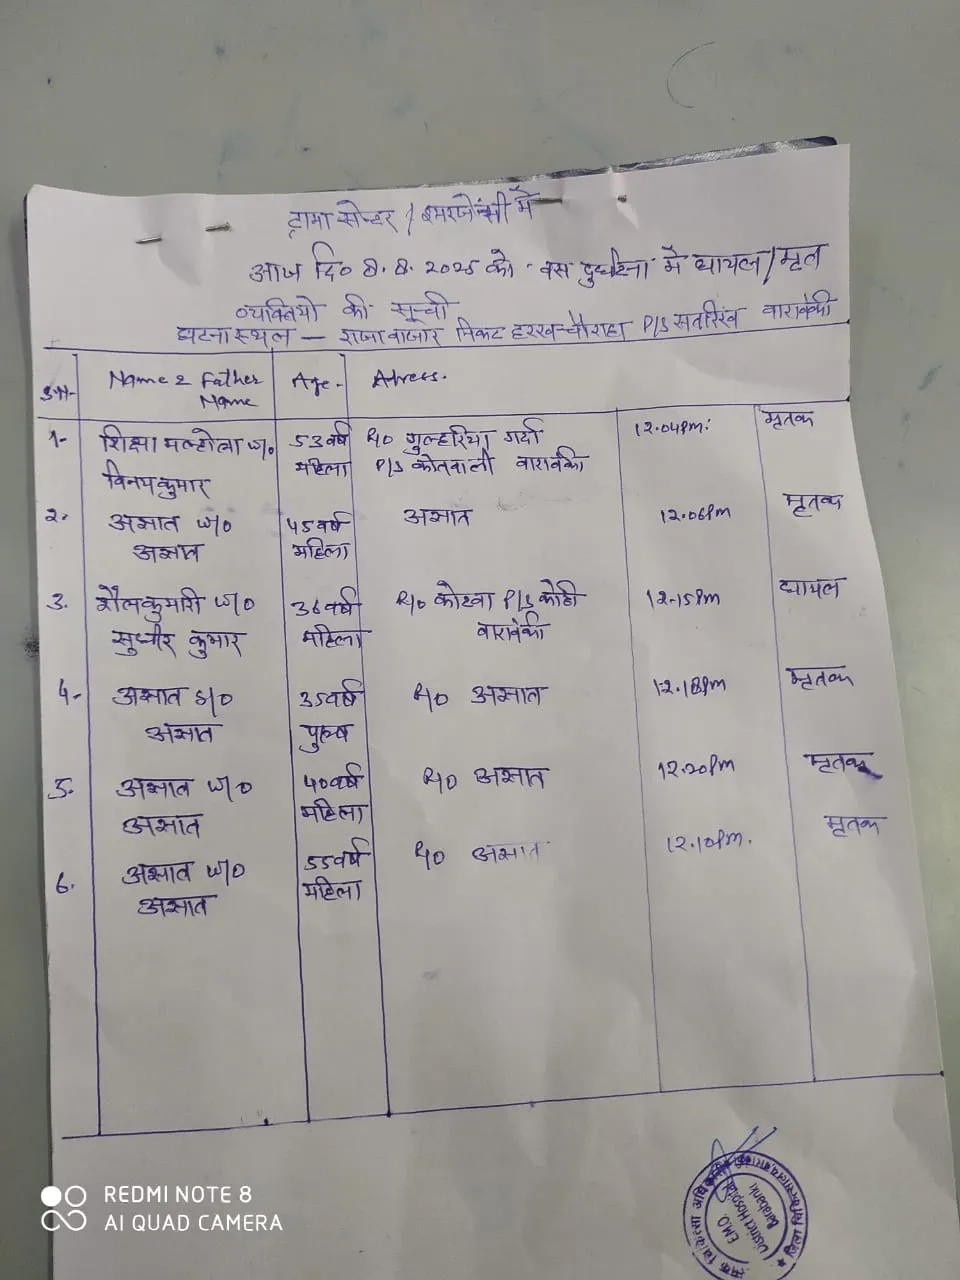 ट्रामा सेन्टर / इमरजेन्सी में
आज दि० 8.8.2025 को बस दुर्घटना में घायल/मृत
व्यक्तियो की सूची
घटना स्थल — राजा बाजार निकट हरख चौराहा P/S सतरिख बाराबंकी
Name & Father Name Age- Adress.
1- शिक्षा मल्होत्रा w/o विनयकुमार 53 वर्ष महिला R/o गुल्हरिया गर्दा P/S कोतवाली बाराबंकी 12.04Pm. मृतक
2. अज्ञात w/o अज्ञात 45 वर्ष महिला अज्ञात 12.06Pm मृतक
3. शैलकुमारी w/o सुधीर कुमार 36 वर्ष महिला R/o कोखा P/S कोठी बाराबंकी 12.15Pm घायल
4- अज्ञात S/o अज्ञात 35 वर्ष पुरुष R/o अज्ञात 12.18Pm मृतक
5. अज्ञात w/o अज्ञात 40 वर्ष महिला R/o अज्ञात 12.20Pm मृतक
6. अज्ञात w/o अज्ञात 55 वर्ष महिला R/o अज्ञात 12.10Pm. मृतक
E.M.O.
District Hospital
Barabanki
REDMI NOTE 8
AI QUAD CAMERA